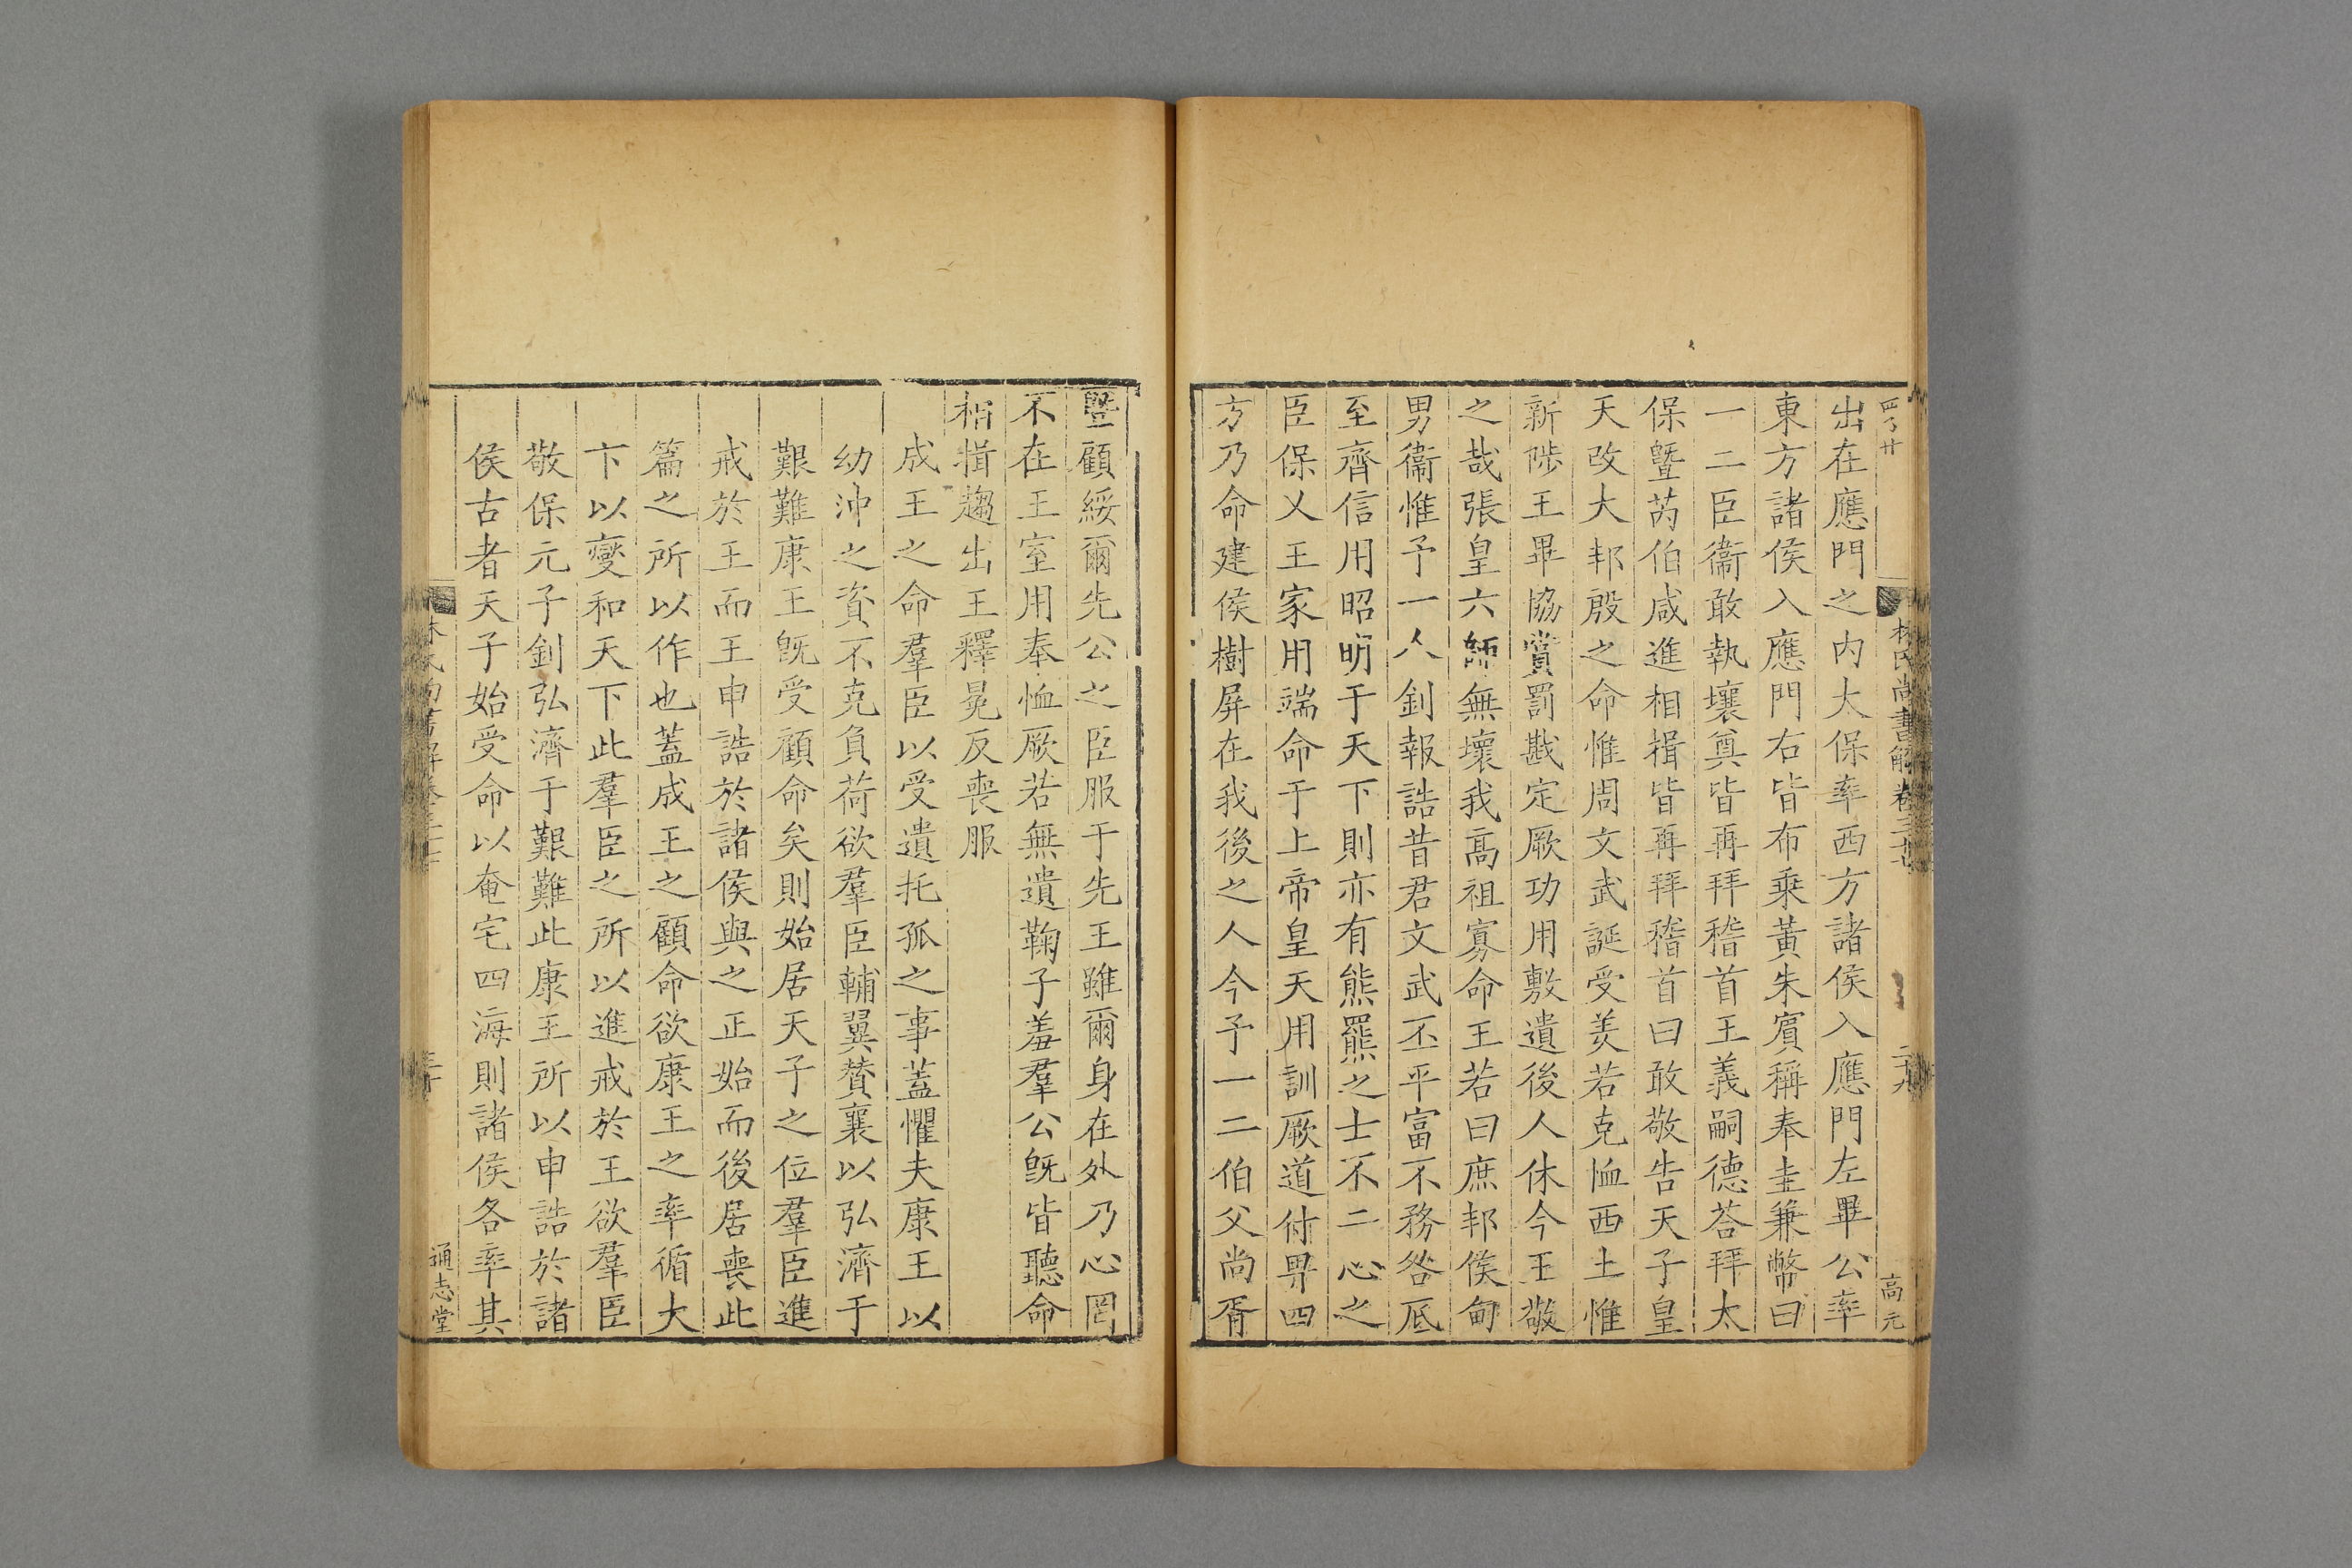 四〇廿
林氏尚書解卷三十七
二十九
高元
出在應門之内太保率西方諸侯入應門左畢公率
東方諸侯入應門右皆布乘黃朱賓稱奉圭兼幣曰
一二臣衞敢執壤奠皆再拜稽首王義嗣德荅拜太
保曁芮伯咸進相揖皆再拜稽首曰敢敬告天子皇
天改大邦殷之命惟周文武誕受羑若克恤西土惟
新陟王畢協賞罰戡定厥功用敷遺後人休今王敬
之哉張皇六師無壞我高祖寡命王若曰庶邦侯甸
男衞惟予一人釗報誥昔君文武丕平富不務咎厎
至齊信用昭明于天下則亦有熊羆之士不二心之
臣保乂王家用端命于上帝皇天用訓厥道付畀四
方乃命建侯樹屏在我後之人今予一二伯父尚胥
曁顧綏爾先公之臣服于先王雖爾身在外乃心罔
不在王室用奉恤厥若無遺鞠子羞羣公旣皆聽命
相揖趨出王釋冕反喪服
成王之命羣臣以受遺托孤之事蓋懼夫康王以
幼沖之資不克負荷欲羣臣輔翼賛襄以弘濟于
艱難康王旣受顧命矣則始居天子之位羣臣進
戒於王而王申誥於諸侯與之正始而後居喪此
篇之所以作也蓋成王之顧命欲康王之率循大
卞以燮和天下此羣臣之所以進戒於王欲羣臣
敬保元子釗弘濟于艱難此康王所以申誥於諸
侯古者天子始受命以奄宅四海則諸侯各率其
三十
通志堂